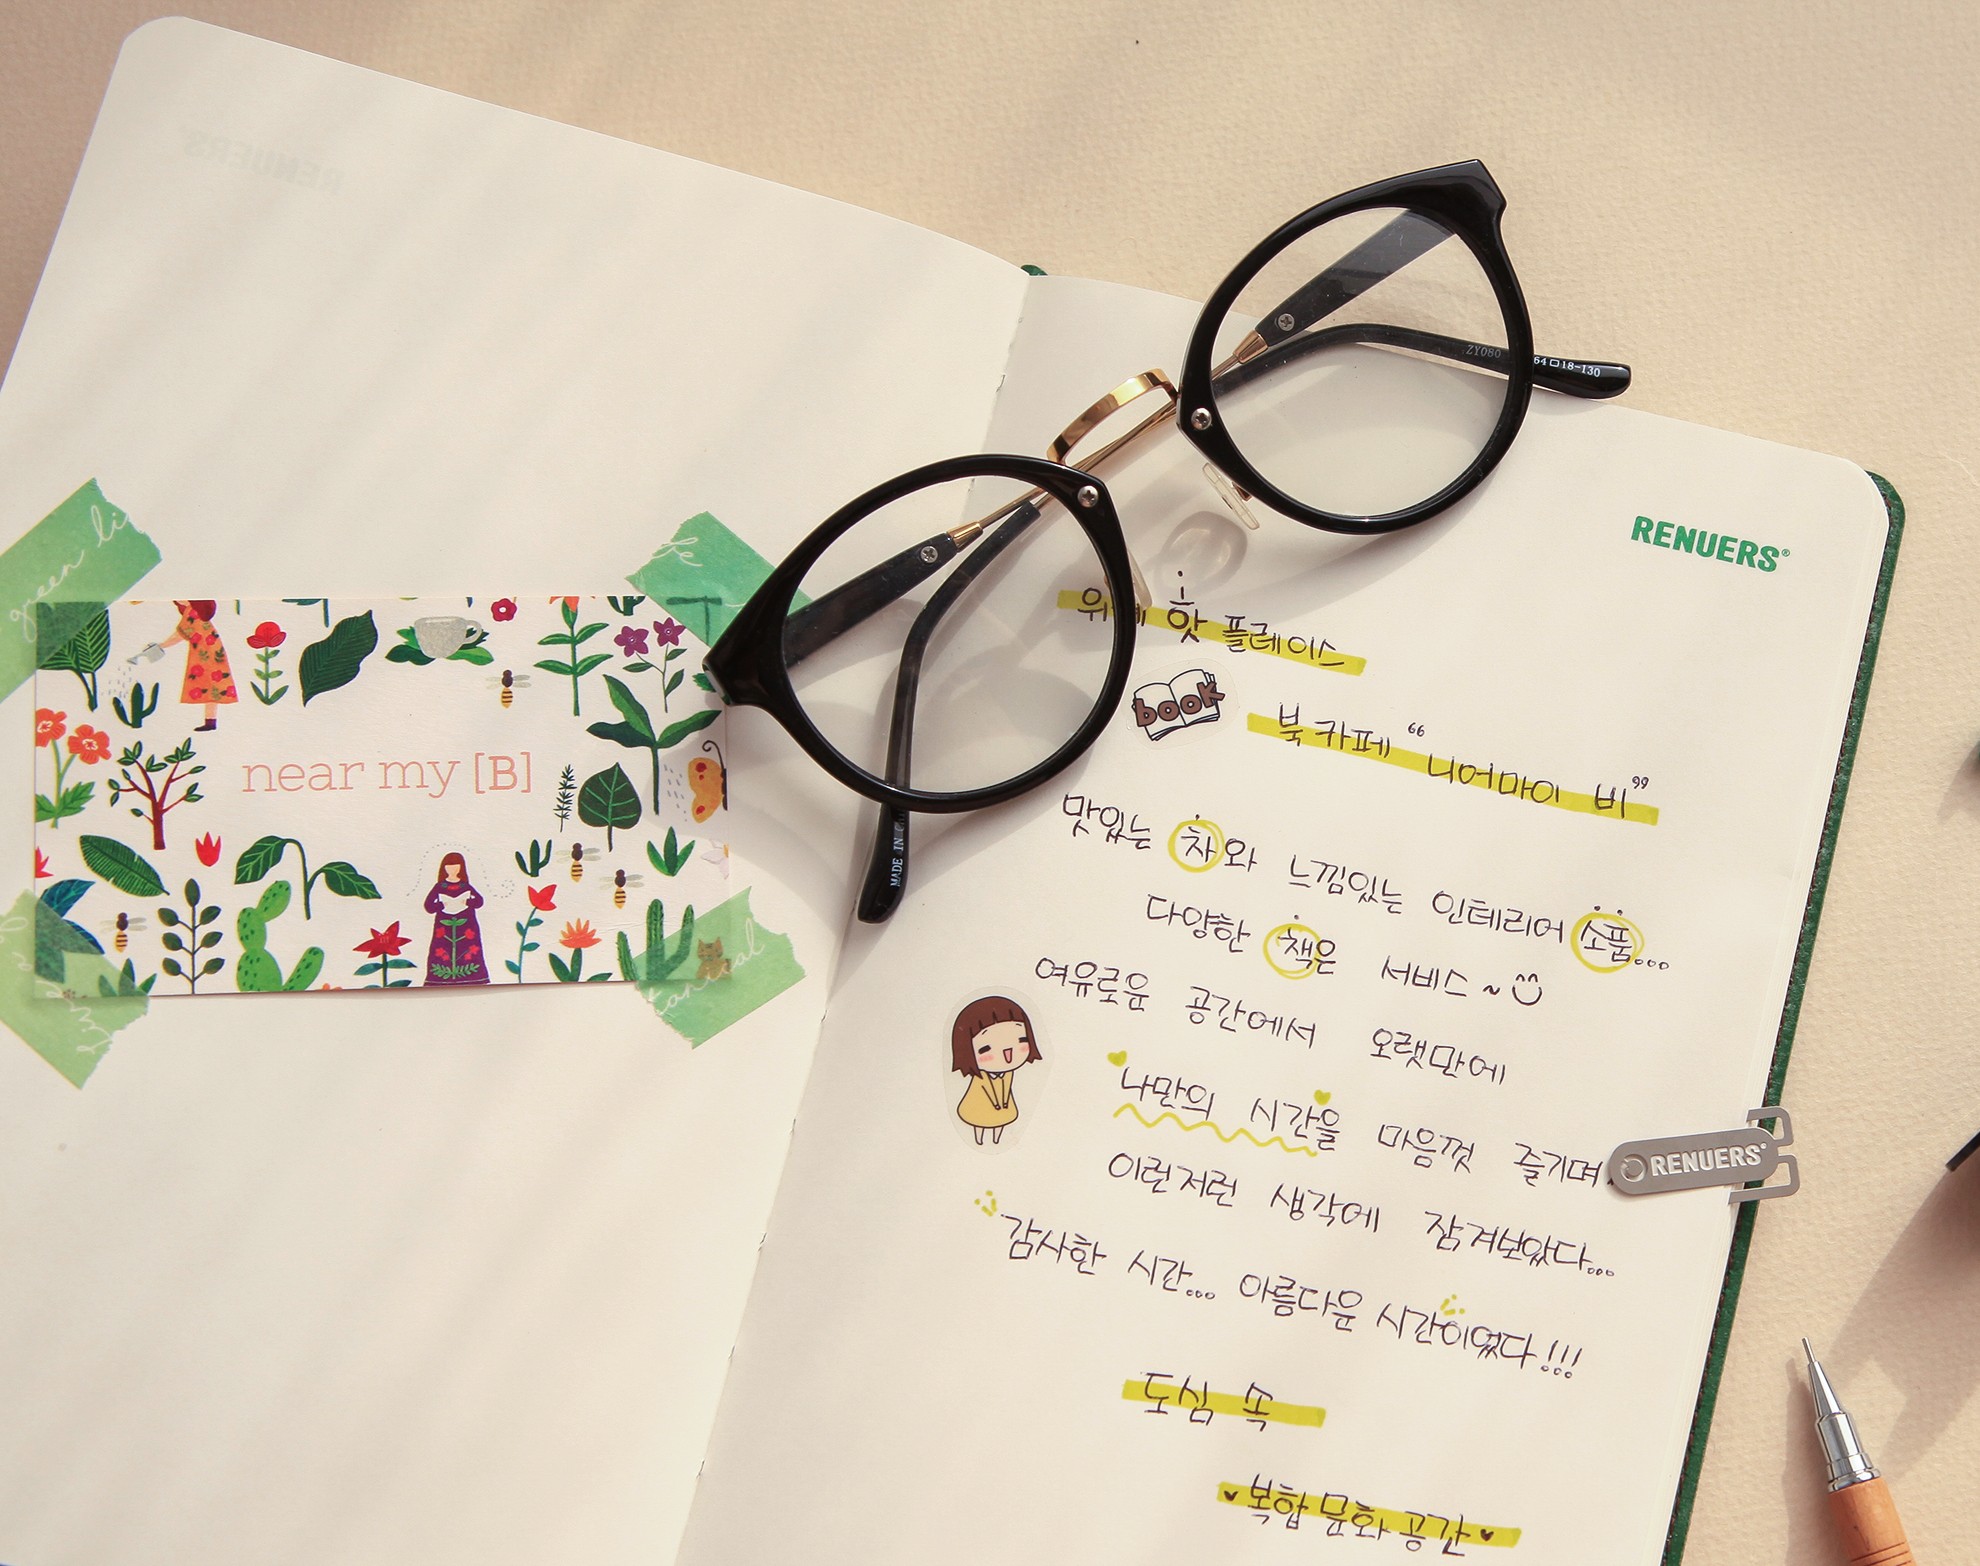 RENUERS
green li
near my [B]
ZY080 54□18-130
MADE IN
RENUERS®
위례 핫 플레이스
book
북카페 “니어마이 비”
맛있는 차와 느낌있는 인테리어 소품...
다양한 책은 서비스~
여유로운 공간에서 오랫만에
나만의 시간을 마음껏 즐기며,
RENUERS
이런저런 생각에 잠겨보았다...
감사한 시간... 아름다운 시간이었다!!!
도심 속
복합문화공간